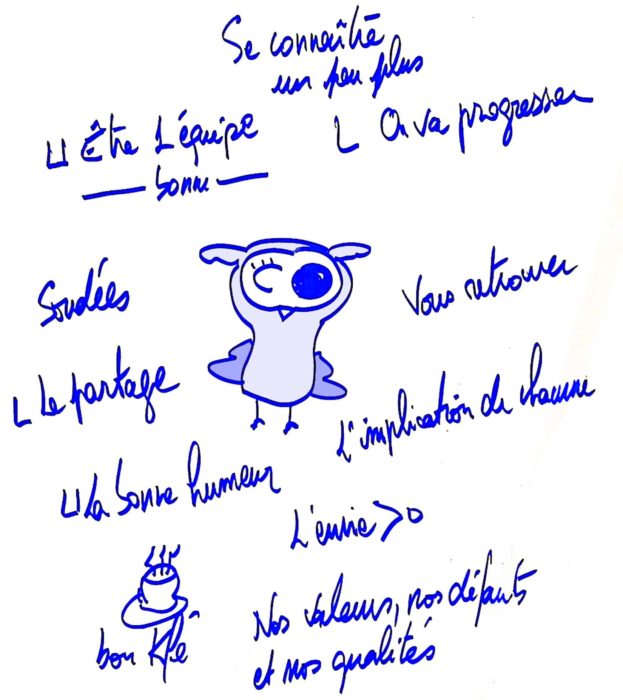 Se connaître
un peu plus
Être L'équipe
bonne
On va progresser
Soudées
Vous retrouver
Le partage
L'implication de chacune
La bonne humeur
L'envie > 0
bon Kfê
Nos valeurs, nos défauts
et nos qualités